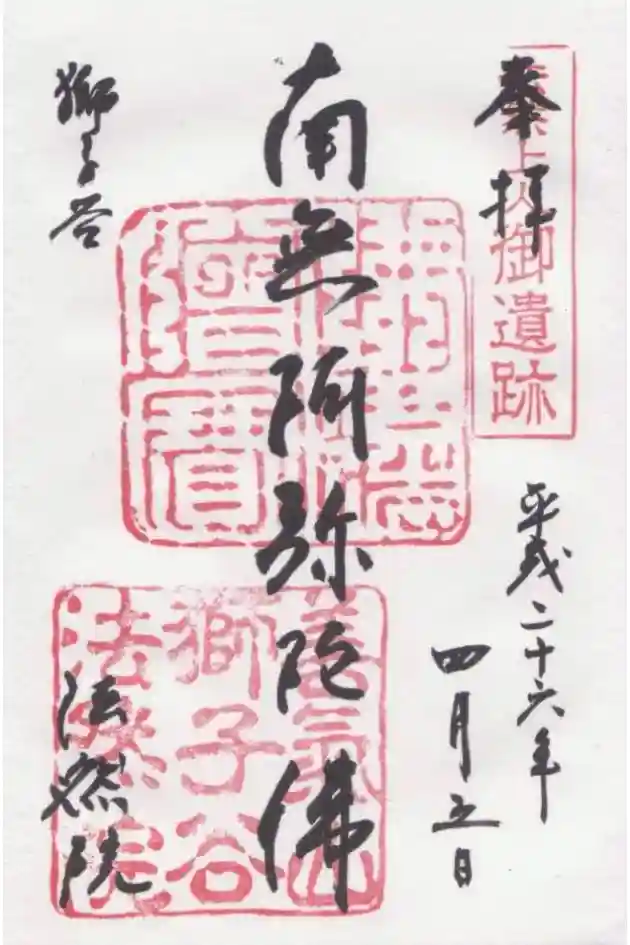 奉拝
上人御遺跡
平成二十六年
四月五日
南無阿弥陀佛
獅子谷
法然院
善氣山
獅子谷
法然院